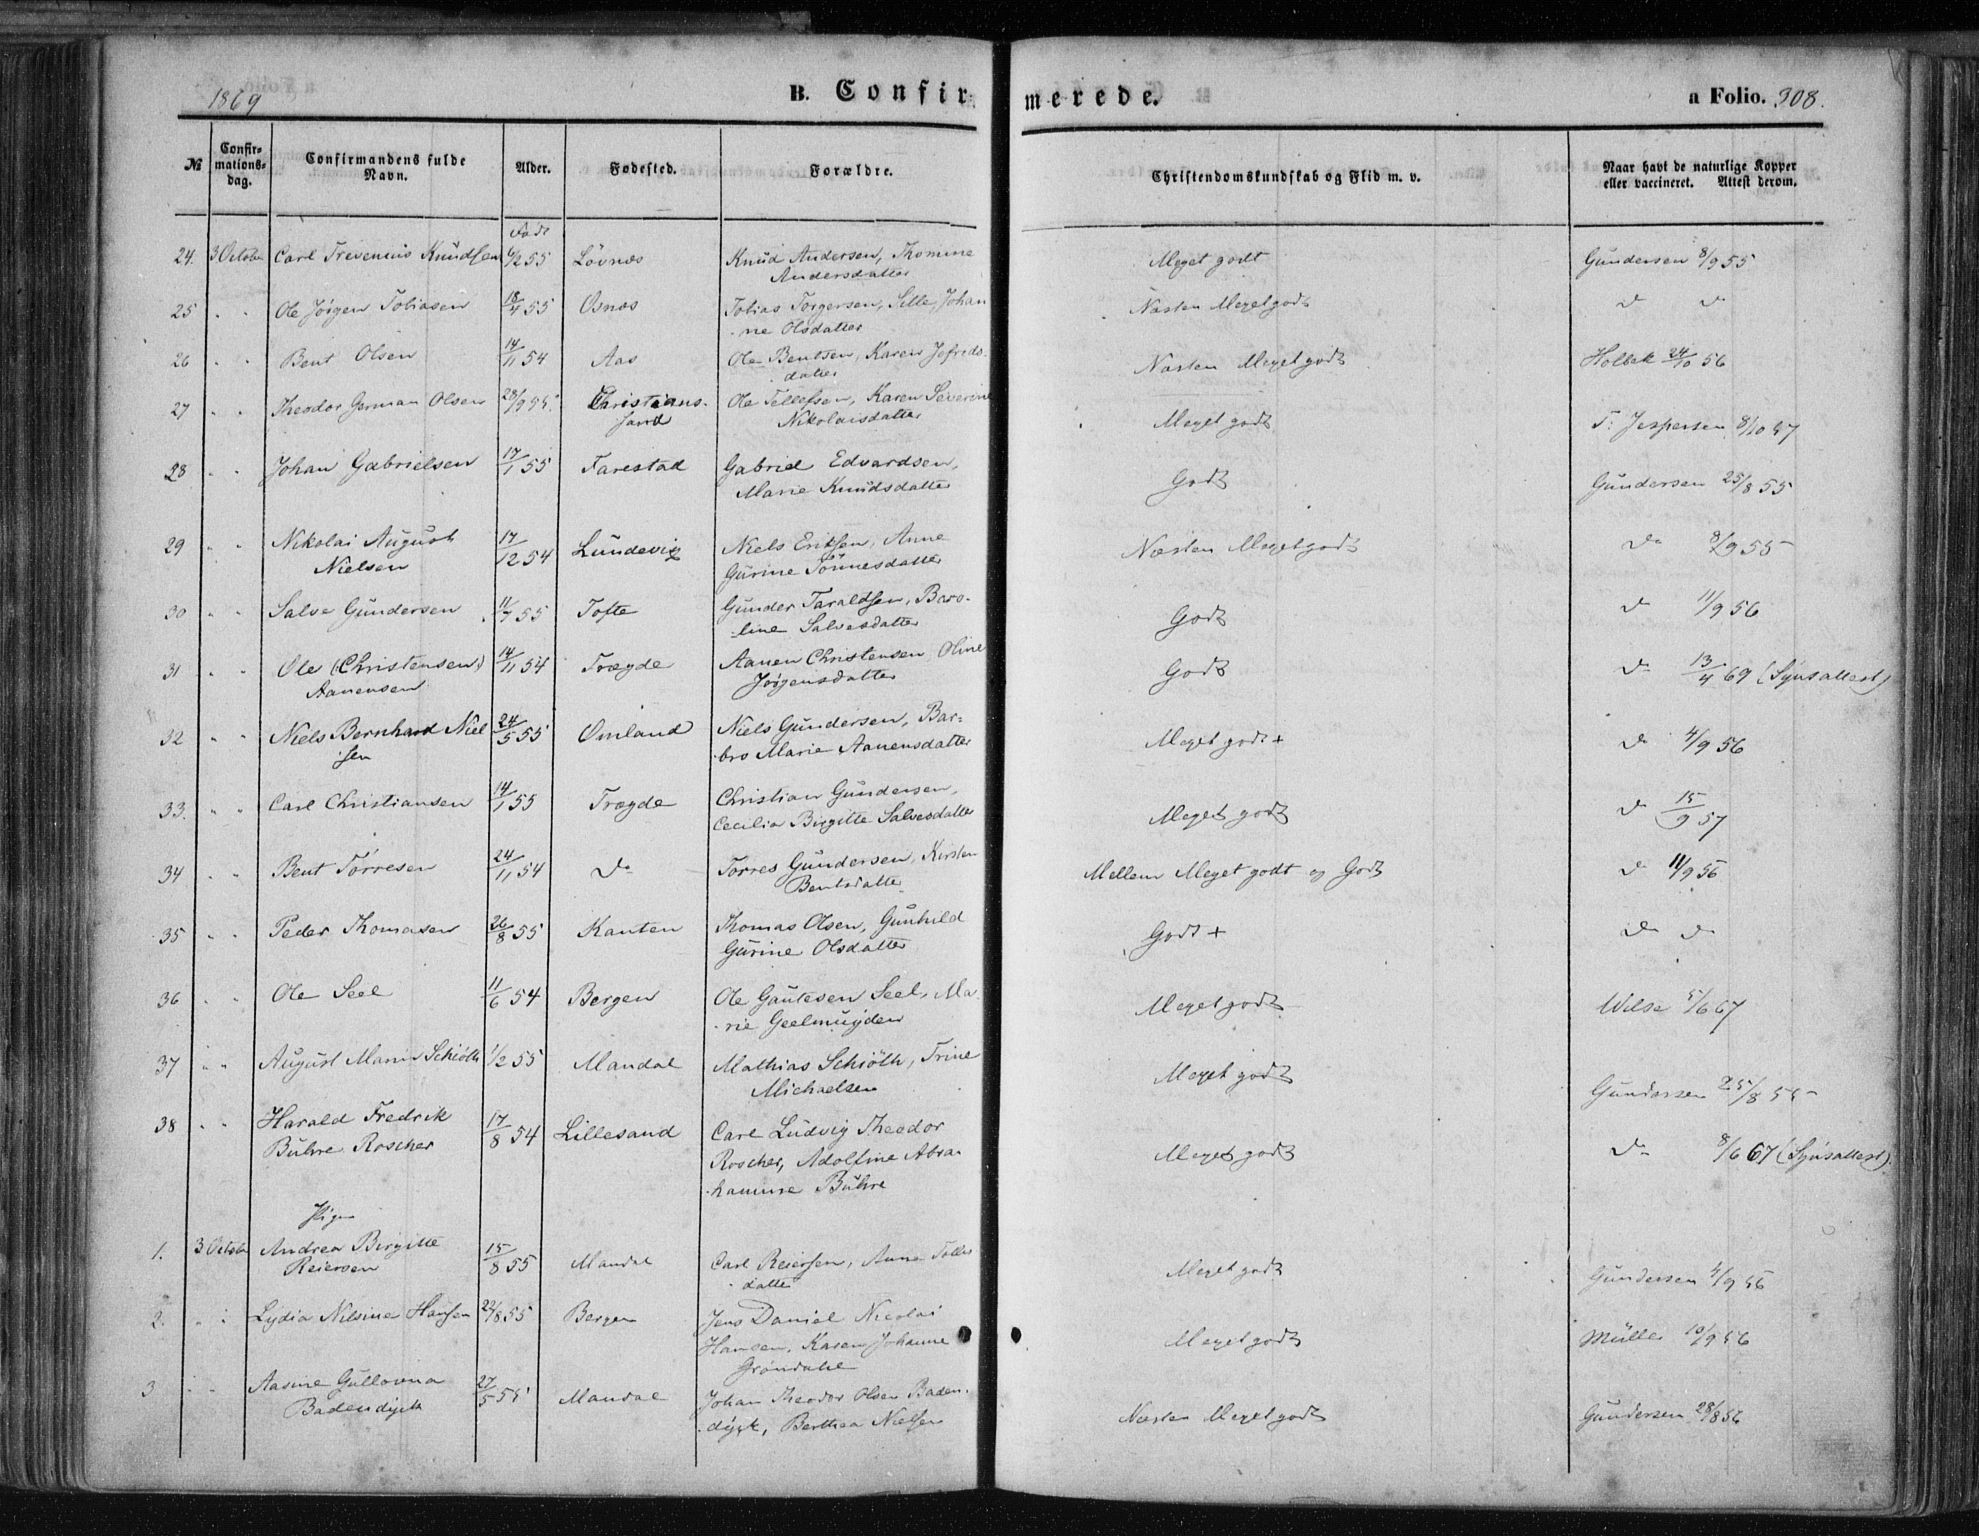 1869 B. Confirmerede. a Folio. 308.
№ Confirmationsdag. Confirmandens fulde Navn. Alder. Fødested. Forældre. Christendomskundskab og Flid m. v. Naar havt de naturlige Kopper eller vaccineret. Attest derom.
Født
24. 3 October Carl Trevenius Knudsen 6/2 55 Lövnæs Knud Andersen, Thomine Meget godt Gundersen 8/9 55
Andersdatter
25 " " Ole Jörgen Tobiasen 18/4 55 Osnæs Tobias Torgersen, Sille Johan Næsten Meget godt do do
ne Olsdatter
26 " " Bent Olsen 14/11 54 Aas Ole Bentsen, Karen Jefreds- Næsten Meget godt Holbek 24/10 56
datter
27 " " Theodor German Olsen 28/9 55. Christians- Ole Tellefsen, Karen Severine Meget godt T. Jespersen 8/10 57
sand Nikolaisdatter
28 " " Johan Gabrielsen 17/1 55 Farestad Gabriel Edvardsen, Godt Gundersen 25/8 55
Marie Knudsdatter
29 " " Nikolai August 17/12 54 Lundevig Niels Eriksen, Anne Næsten Meget godt do 8/9 55
Nielsen Gurine Tönnesdatter
30 " " Salve Gundersen 11/7 55 Tofte Gunder Taraldsen, Baro- Godt do 11/9 56
line Salvesdatter
31 " " Ole (Christensen) 14/11 54 Trægde Aanen Christensen Oline Godt do 13/4 69 (Synsattest)
Aanensen Jörgensdatter
32 " " Niels Bernhard Niel 24/5 55 Omland Niels Gundersen, Bar- Meget godt + do 4/9 56
sen bro Marie Aanensdatter
33. " " Carl Christiansen 14/1 55 Trægde Christian Gundersen, Meget godt do 15/9 57
Cecilia Birgitte Salvesdatter
34 " " Bent Torresen 24/11 54 do Torres Gundersen, Kirsten Mellem Meget godt og Godt do 11/9 56
Bentsdatter
35 " " Peder Thomasen 26/8 55 Kanten Thomas Olsen, Gunhild Godt + do do
Gurine Olsdatter
36 " " Ole Seel 11/6 54 Bergen Ole Gautesen Seel, Ma- Meget godt Wilse 5/6 67
rie Geelmuyden
37 " " August Marin Schiöth 1/2 55 Mandal Mathias Schiöth, Trine Meget godt Gundersen 25/8 55
Michaelsen
38 " " Harald Fredrik 17/8 54 Lillesand Carl Ludvig Theodor
Buhre Roscher Roscher, Adolfine Abra- Meget godt do 8/6 67 (Synsattest).
hamine Buhre
Piger
1. 3 October Andrea Birgitte 15/8 55 Mandal Carl Reiersen, Anne Tolles Meget godt Gundersen 4/9 56
Reiersen datter
2. " " Lydia Nilsine Hansen 22/8 55 Bergen Jens Daniel Nicolai
Hansen, Karen Johanne Meget godt Müller 10/9 56
Gröndahl
3 " " Aasine Gullovna 27/5 55 Mandal Johan Theodor Olsen Baden- Næsten Meget godt Gundersen 28/8 56
Badendyck dyck, Berthea Nielsen